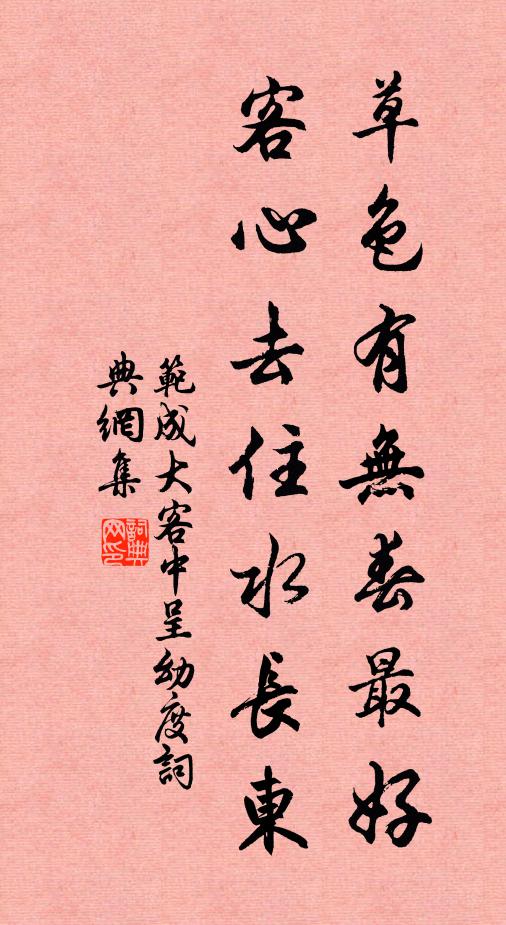 草色有無春最好
客心去住水長東
範成大客中呈幼度詞
典網集
詞典网印